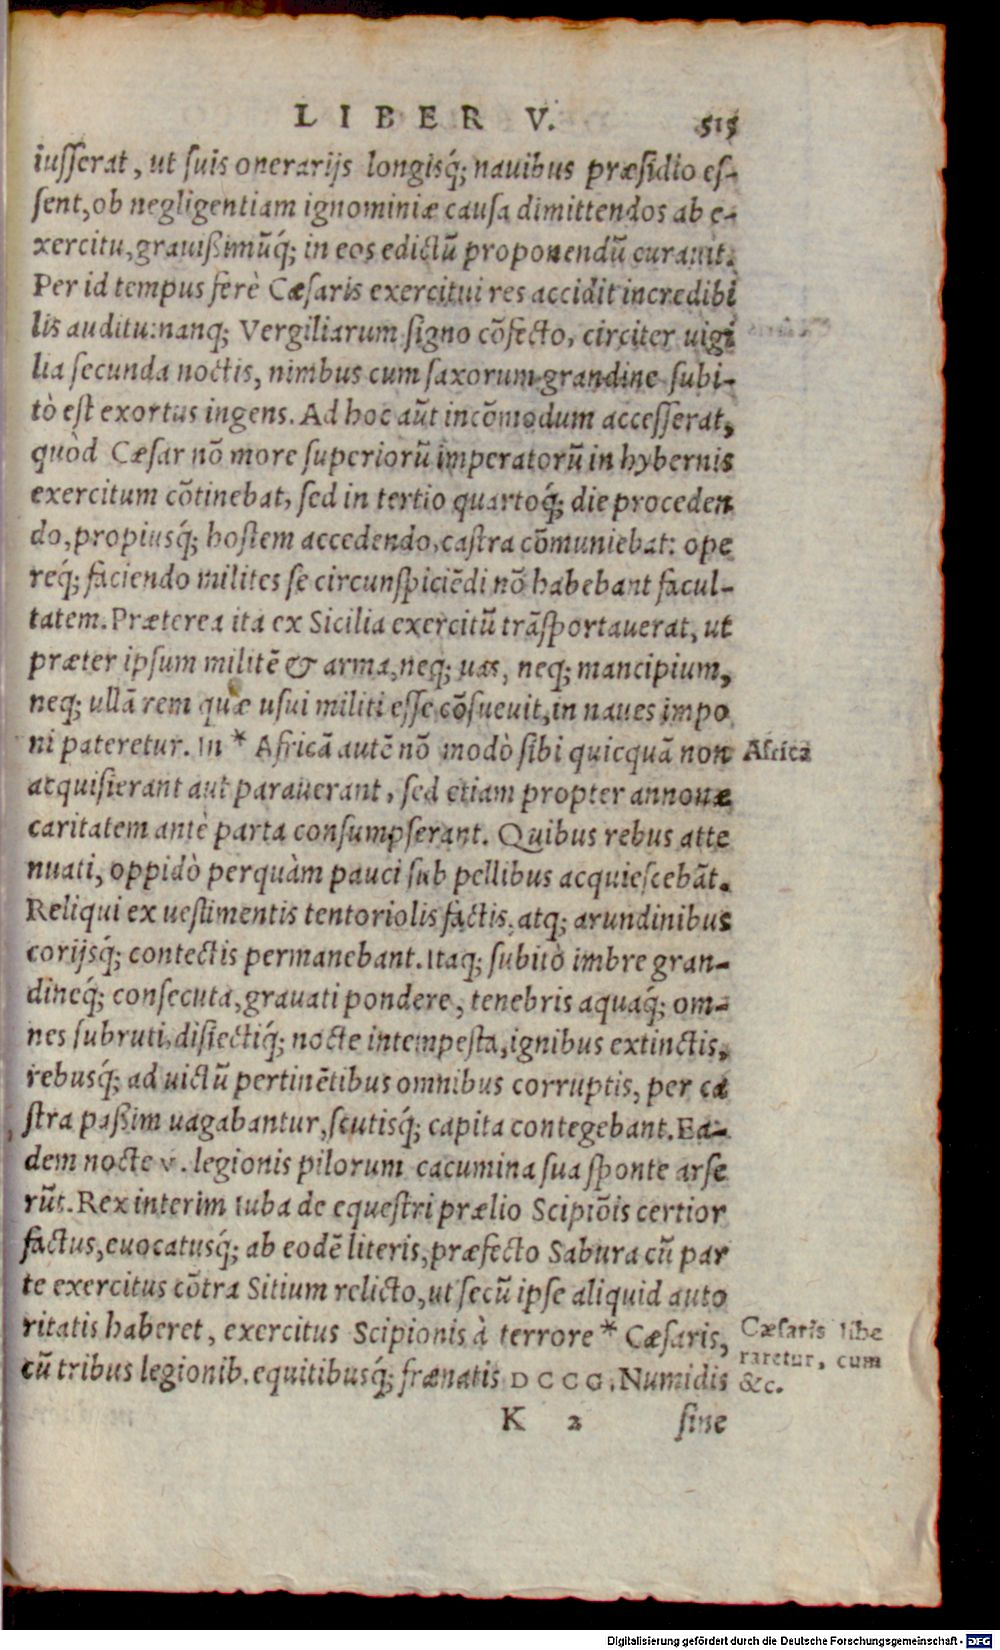 LIBER V. 515
iusserat, ut suis onerarijs longisq́; nauibus præsidio es-
sent, ob negligentiam ignominiæ causa dimittendos ab e-
xercitu, grauißimũq́; in eos edictũ proponendũ curauit.
Per id tempus ferè Cæsaris exercitui res accidit incredibi
lis auditu: nanq; Vergiliarum signo cõfecto, circiter uigi
lia secunda noctis, nimbus cum saxorum grandine subi-
tò est exortus ingens. Ad hoc aũt incõmodum accesserat,
quòd Cæsar nõ more superiorũ imperatorũ in hybernis
exercitum cõtinebat, sed in tertio quartoq́; die proceden
do, propiusq́; hostem accedendo, castra cõmuniebat: ope
req́; faciendo milites se circunspiciẽdi nõ habebant facul-
tatem. Præterea ita ex Sicilia exercitũ trãsportauerat, ut
præter ipsum militẽ & arma, neq; uas, neq; mancipium,
neq; ullã rem quæ usui militi esse cõsueuit, in naues impo
ni pateretur. In * Africã autẽ nõ modò sibi quicquã non
acquisierant aut parauerant, sed etiam propter annonæ
caritatem antè parta consumpserant. Quibus rebus atte
nuati, oppidò perquàm pauci sub pellibus acquiescebãt.
Reliqui ex uestimentis tentoriolis factis, atq; arundinibus
corijsq́; contectis permanebant. Itaq; subitò imbre gran-
dineq́; consecuta, grauati pondere, tenebris aquaq́; om-
nes subruti, disiectiq́; nocte intempesta, ignibus extinctis,
rebusq́; ad uictũ pertinẽtibus omnibus corruptis, per ca
stra paßim uagabantur, scutisq́; capita contegebant. Ea-
dem nocte v. legionis pilorum cacumina sua sponte arse
rũt. Rex interim Iuba de equestri prælio Scipiõis certior
factus, euocatusq́; ab eodẽ literis, præfecto Sabura cũ par
te exercitus cõtra Sitium relicto, ut secũ ipse aliquid auto
ritatis haberet, exercitus Scipionis à terrore * Cæsaris,
cũ tribus legionib. equitibusq́; frænatis DCCC. Numidis
K 2 sine
Africa
Cæsaris libe
raretur, cum
&c.
Digitalisierung gefördert durch die Deutsche Forschungsgemeinschaft - DFG